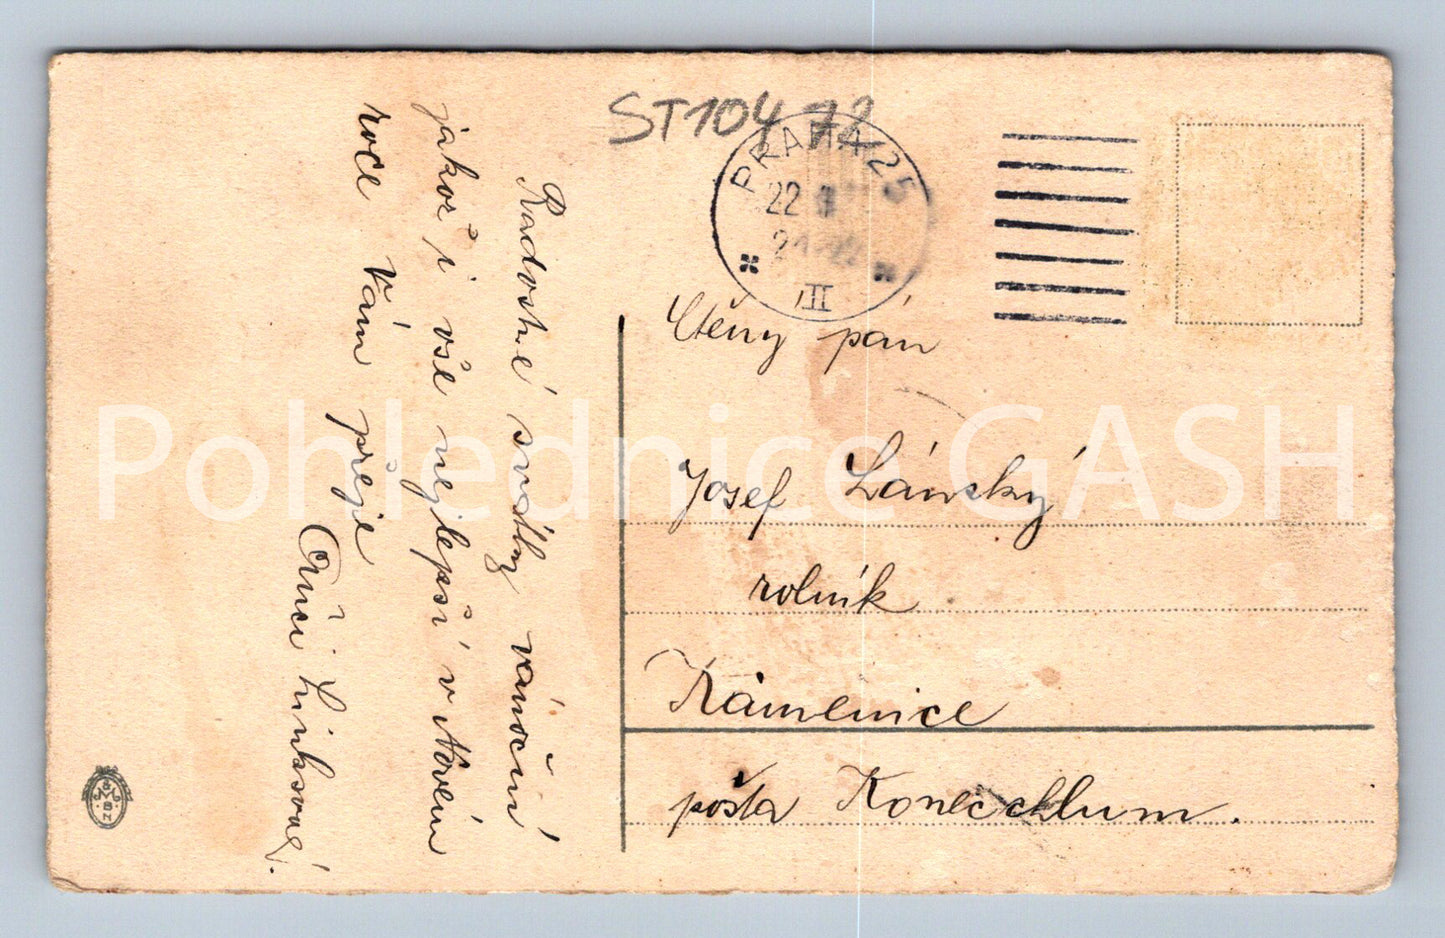 ST104 72
PRAHA 25
22
21-22
II
Radostné svátky vánoční
jakož i vše nejlepší v Novém
roce Vám přeje
Ctěný pán
Josef Lánský
rolník
Kamenice
pošta Konecchlum.
Pohlednice GASH